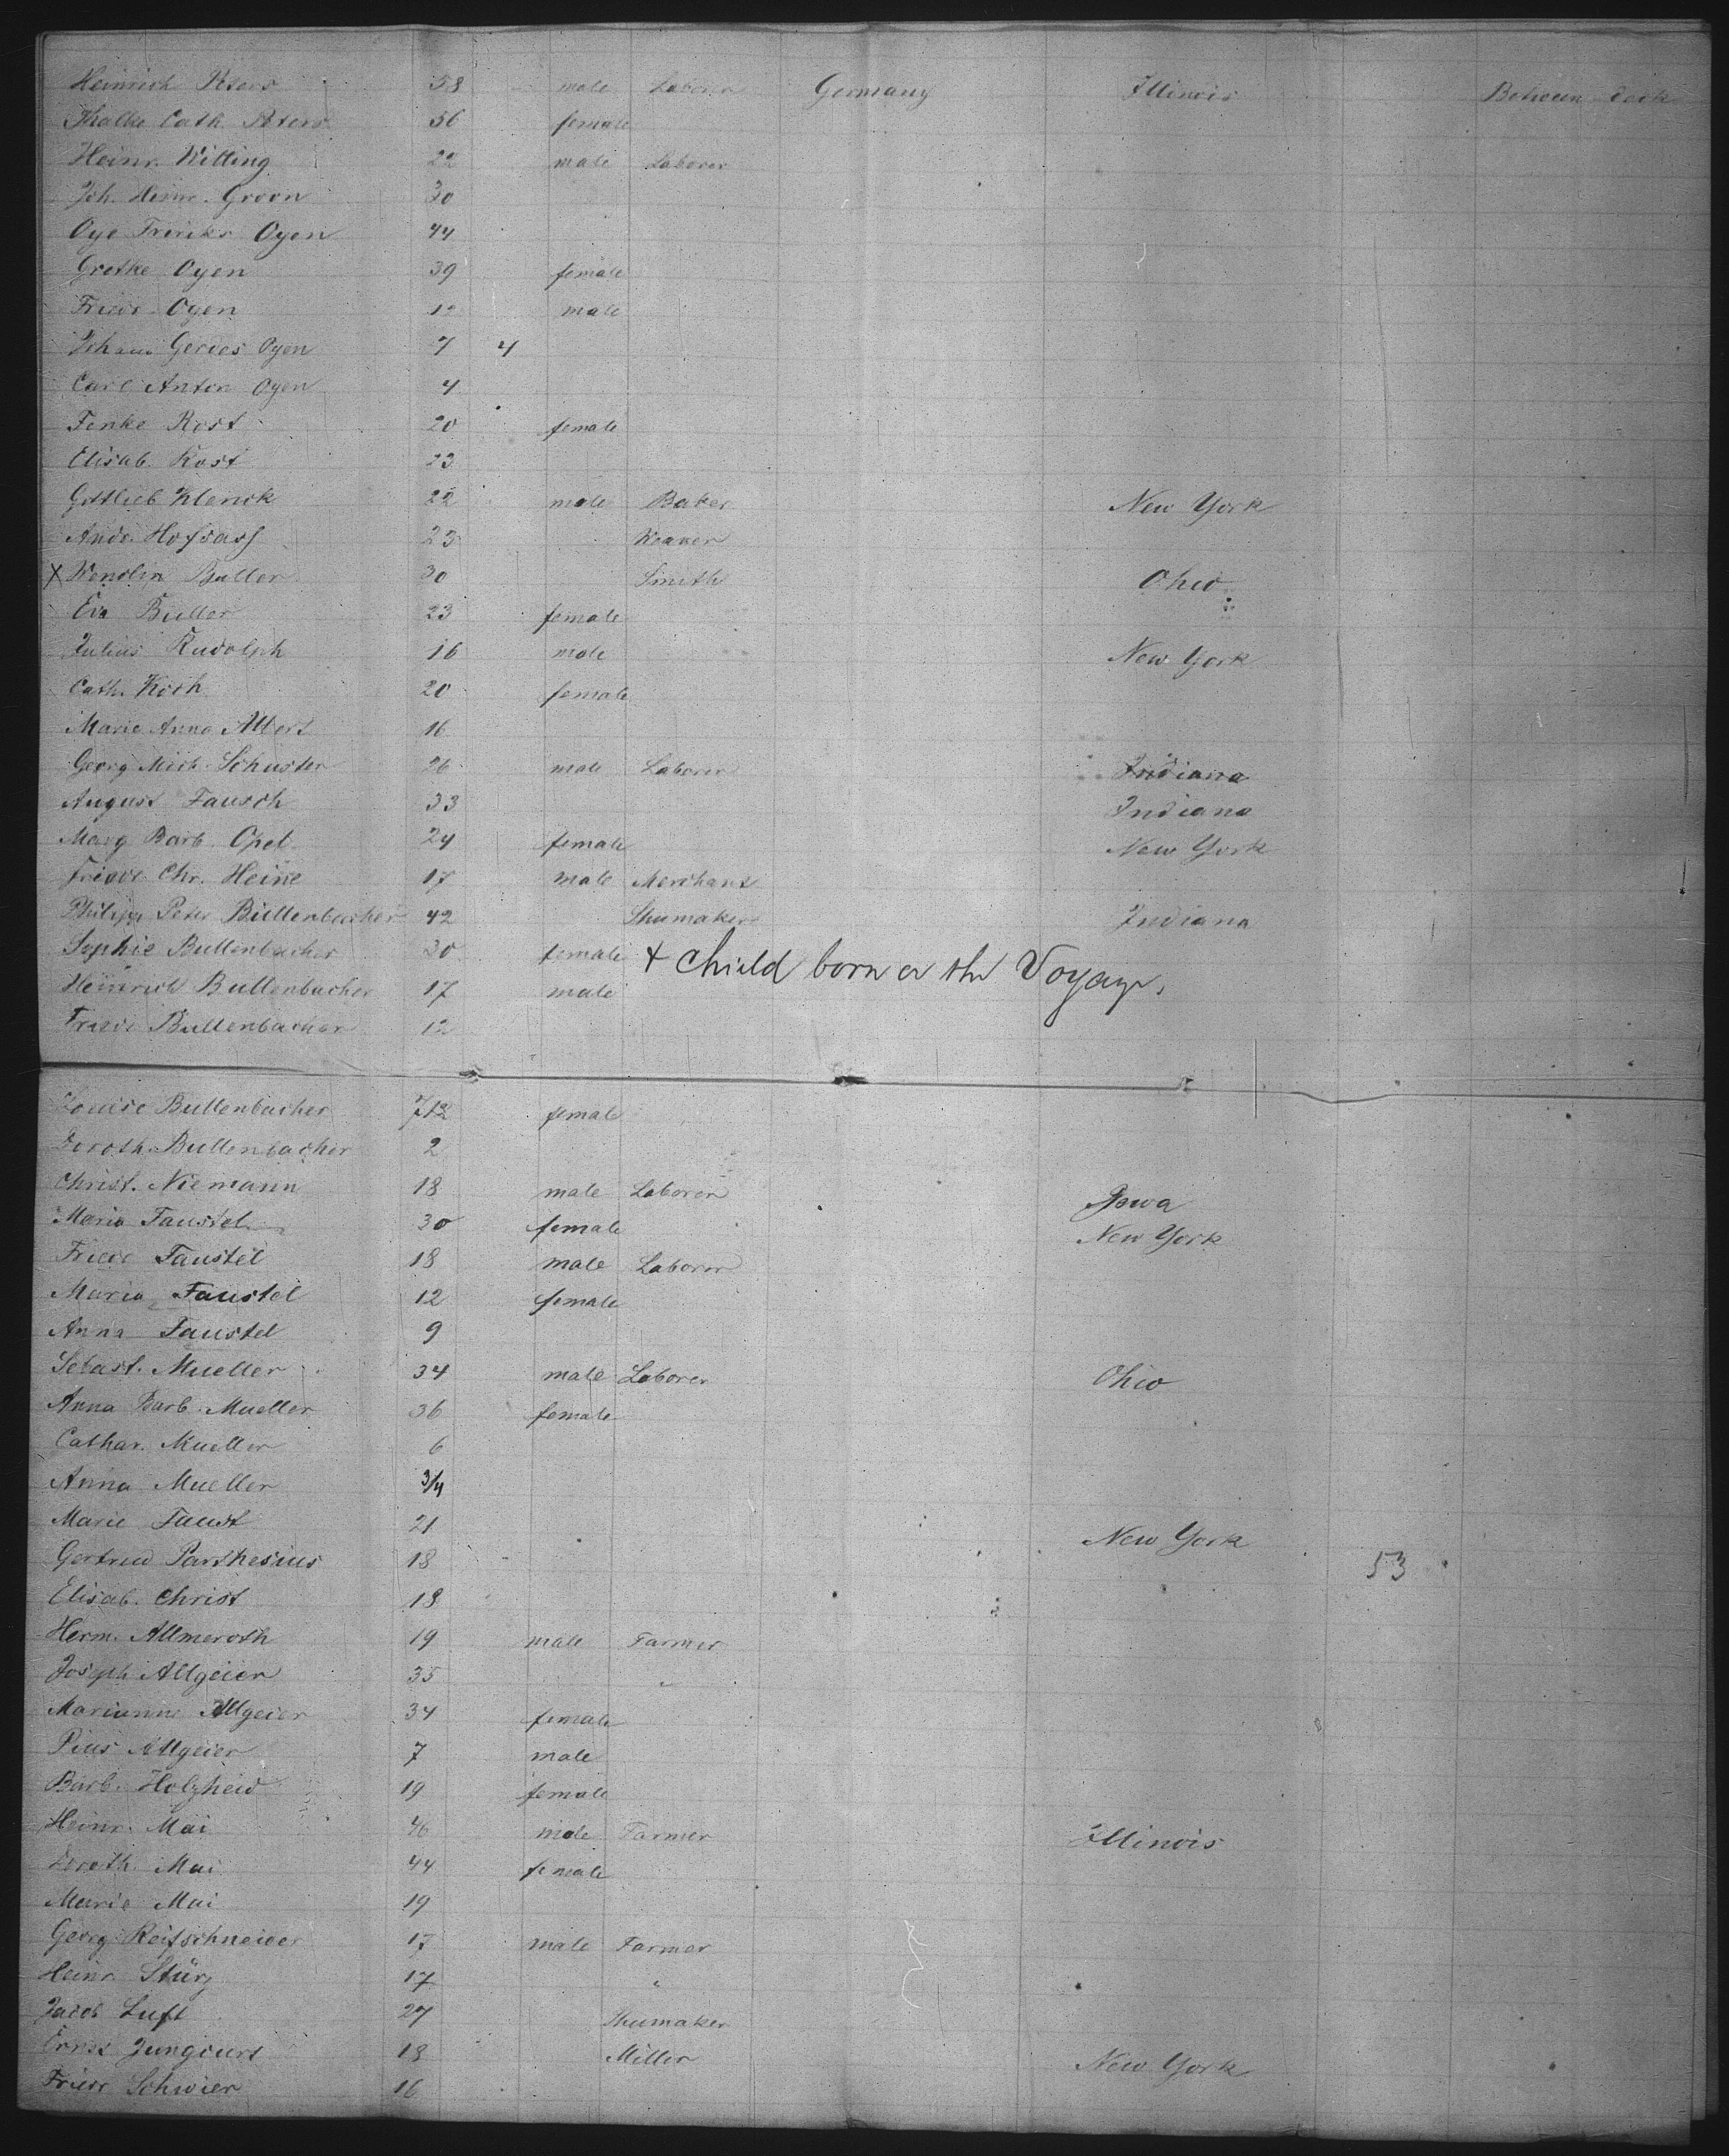 Heinrich Peters 58 male Laborer Germany Illinois Between deck
Thalke Cath. Peters 56 female
Heinr. Witting 22 male Laborer
Joh. Heinr. Groon 30
Oye Freriks Oyen 44
Gretke Oyen 39 female
Friedr. Oyen male
Johann Gerdes Oyen 7 4
Carl Anton Oyen 4
Tenke Rost 20 female
Elisab. Rost 23
Gottlieb Klenck 22 male Baker New York
Andr. Hofsass 23 Weaver
X Wendlin Buller 30 Smith Ohio
Eva Buller 23 female
Julius Rudolph 16 male New York
Cath. Koch 20 female
Marie Anna Albert 16
Georg Mich. Schuster 26 male Laborer Indiana
August Fausch 33 Indiana
Marg. Barb. Opel 24 female New York
Friedr. Chr. Heine 17 male Merchant
Philipp Peter Bullenbacher 42 Shumaker Indiana
Sophie Bullenbacher 30 female + Child born on the Voyage.
Heinrich Bullenbacher 17 male
Friedr. Bullenbacher 12
Louise Bullenbacher female
Doroth. Bullenbacher 2
Christ. Niemann 18 male Laborer Iowa
Maria Faustel 30 female New York
Friedr. Faustel 18 male Laborer
Maria Faustel 12 female
Anna Faustel 9
Sebast. Mueller 34 male Laborer Ohio
Anna Barb. Mueller 36 female
Cathar. Mueller 6
Anna Mueller 3/4
Marie Faust 21 New York
Gertrud Parthesius 18 53
Elisab. Christ 18
Herm. Allmeroth 19 male Farmer
Joseph Allgeier 35 "
Marianne Allgeier 34 female
Pius Allgeier 7 male
Barb. Holzheid 19 female
Heinr. Mai 46 male Farmer Illinois
Doroth. Mai 44 female
Marie Mai 19
Georg Reifschneider 17 male Farmer
Heinr. Stürz 17 "
Jacob Luft 27 Shumaker
Ernst Jungcurt 18 Miller New York
Friedr. Schwier 16